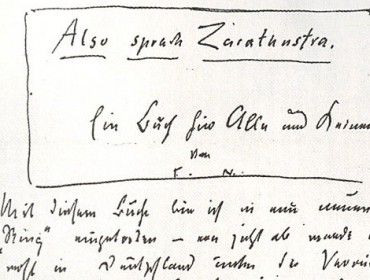 Also sprach Zarathustra.
Ein Buch für Alle und Keinen
Von
F. N.
Mit diesem Buche bin ich in einen neuen
"Ring" eingetreten — von jetzt ab werde
wohl in Deutschland unter die Verrü